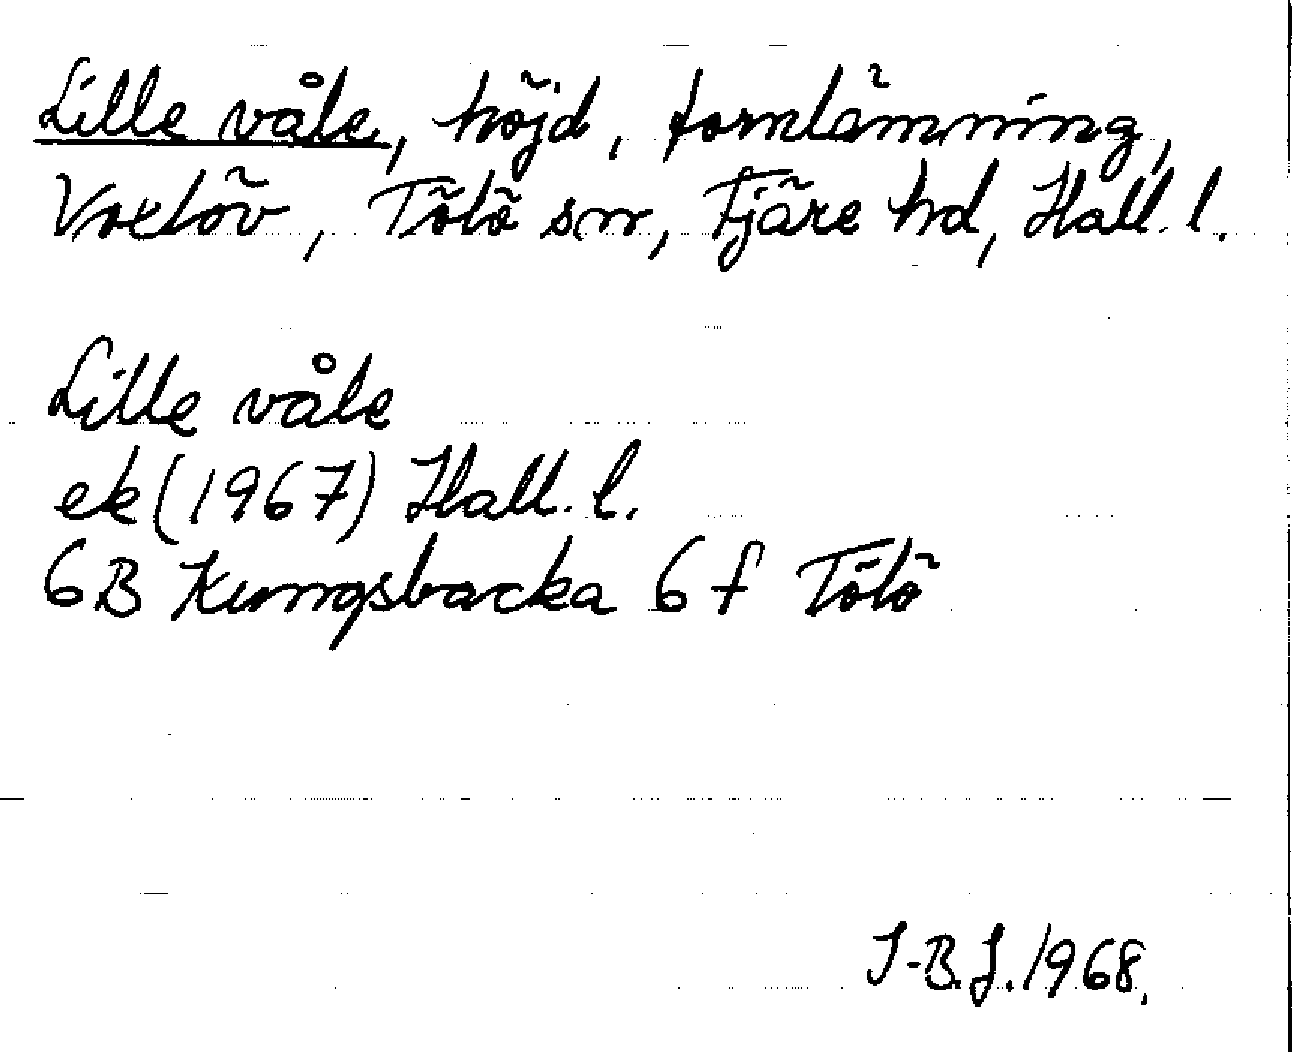 Lille våle, höjd, fornlämning,
Voxlöv, Tölö sn, Fjäre hd, Hall. l.
Lille våle
ek (1967) Hall. l.
6B Kungsbacka 6 f Tölö
I-B.J. 1968.